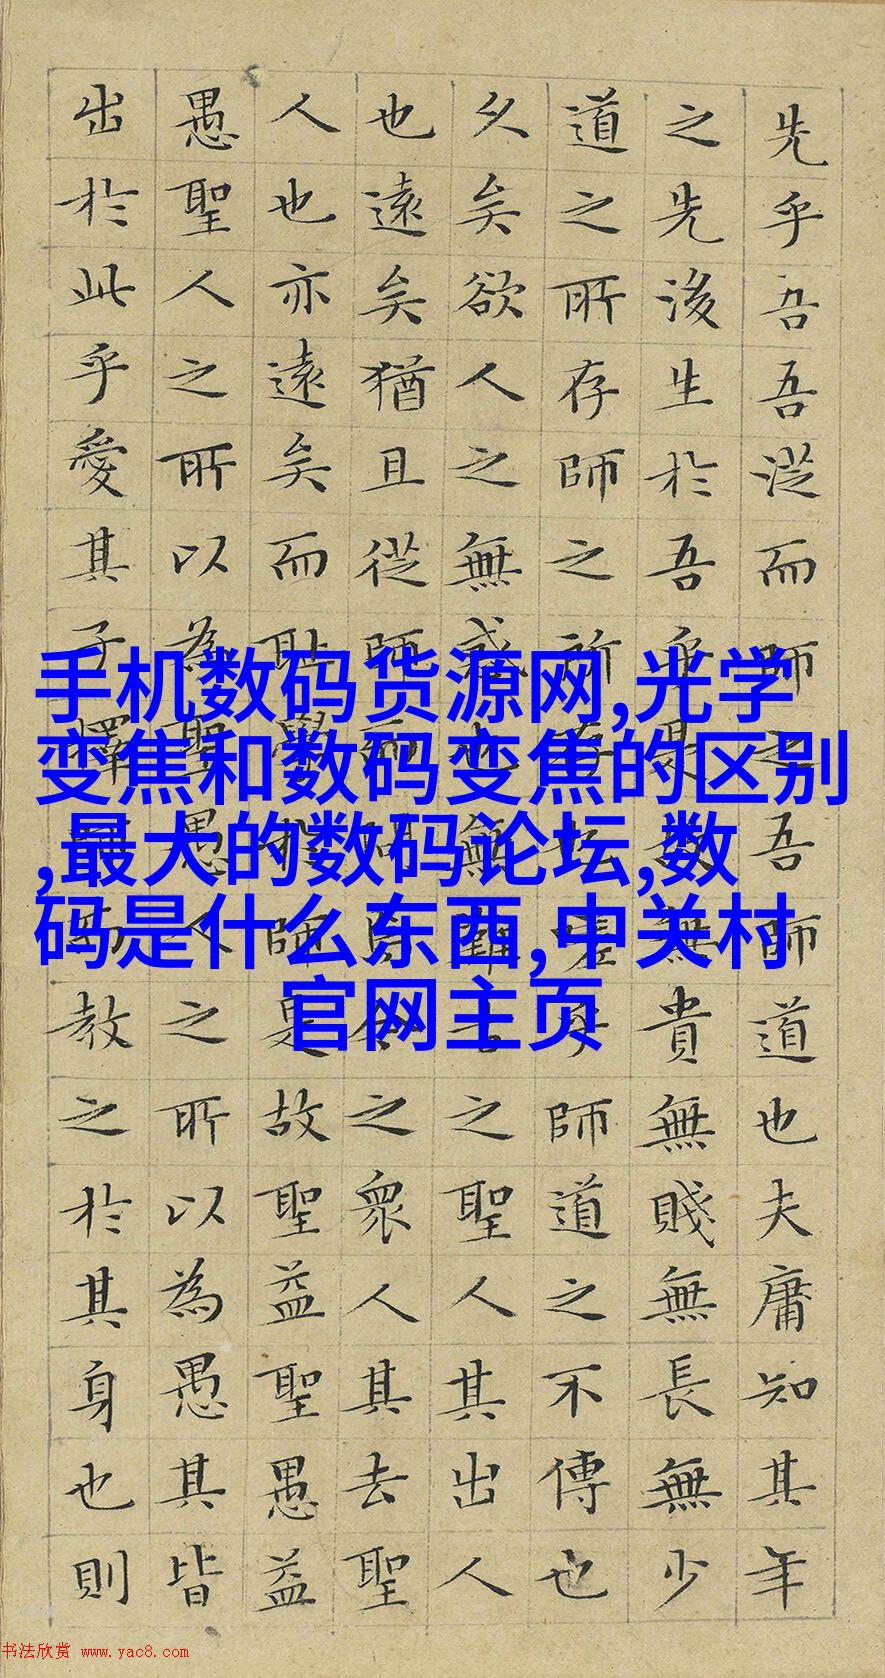 先乎吾吾從而師之吾師道也夫庸知其年
之先後生於吾乎是故無貴無賤無長無少
道之所存師之所存也嗟乎師道之不傳也
久矣欲人之無惑也無難古之聖人其出人
也遠矣猶且從師而問焉今之眾人其去聖
人也亦遠矣而恥學於師是故聖益聖愚益
愚聖人之所以為聖愚人之所以為愚其皆
出於此乎愛其子擇師而教之於其身也則
手机数码货源网,光学
变焦和数码变焦的区别
,最大的数码论坛,数
码是什么东西,中关村
官网主页
书法欣赏 www.yac8.com